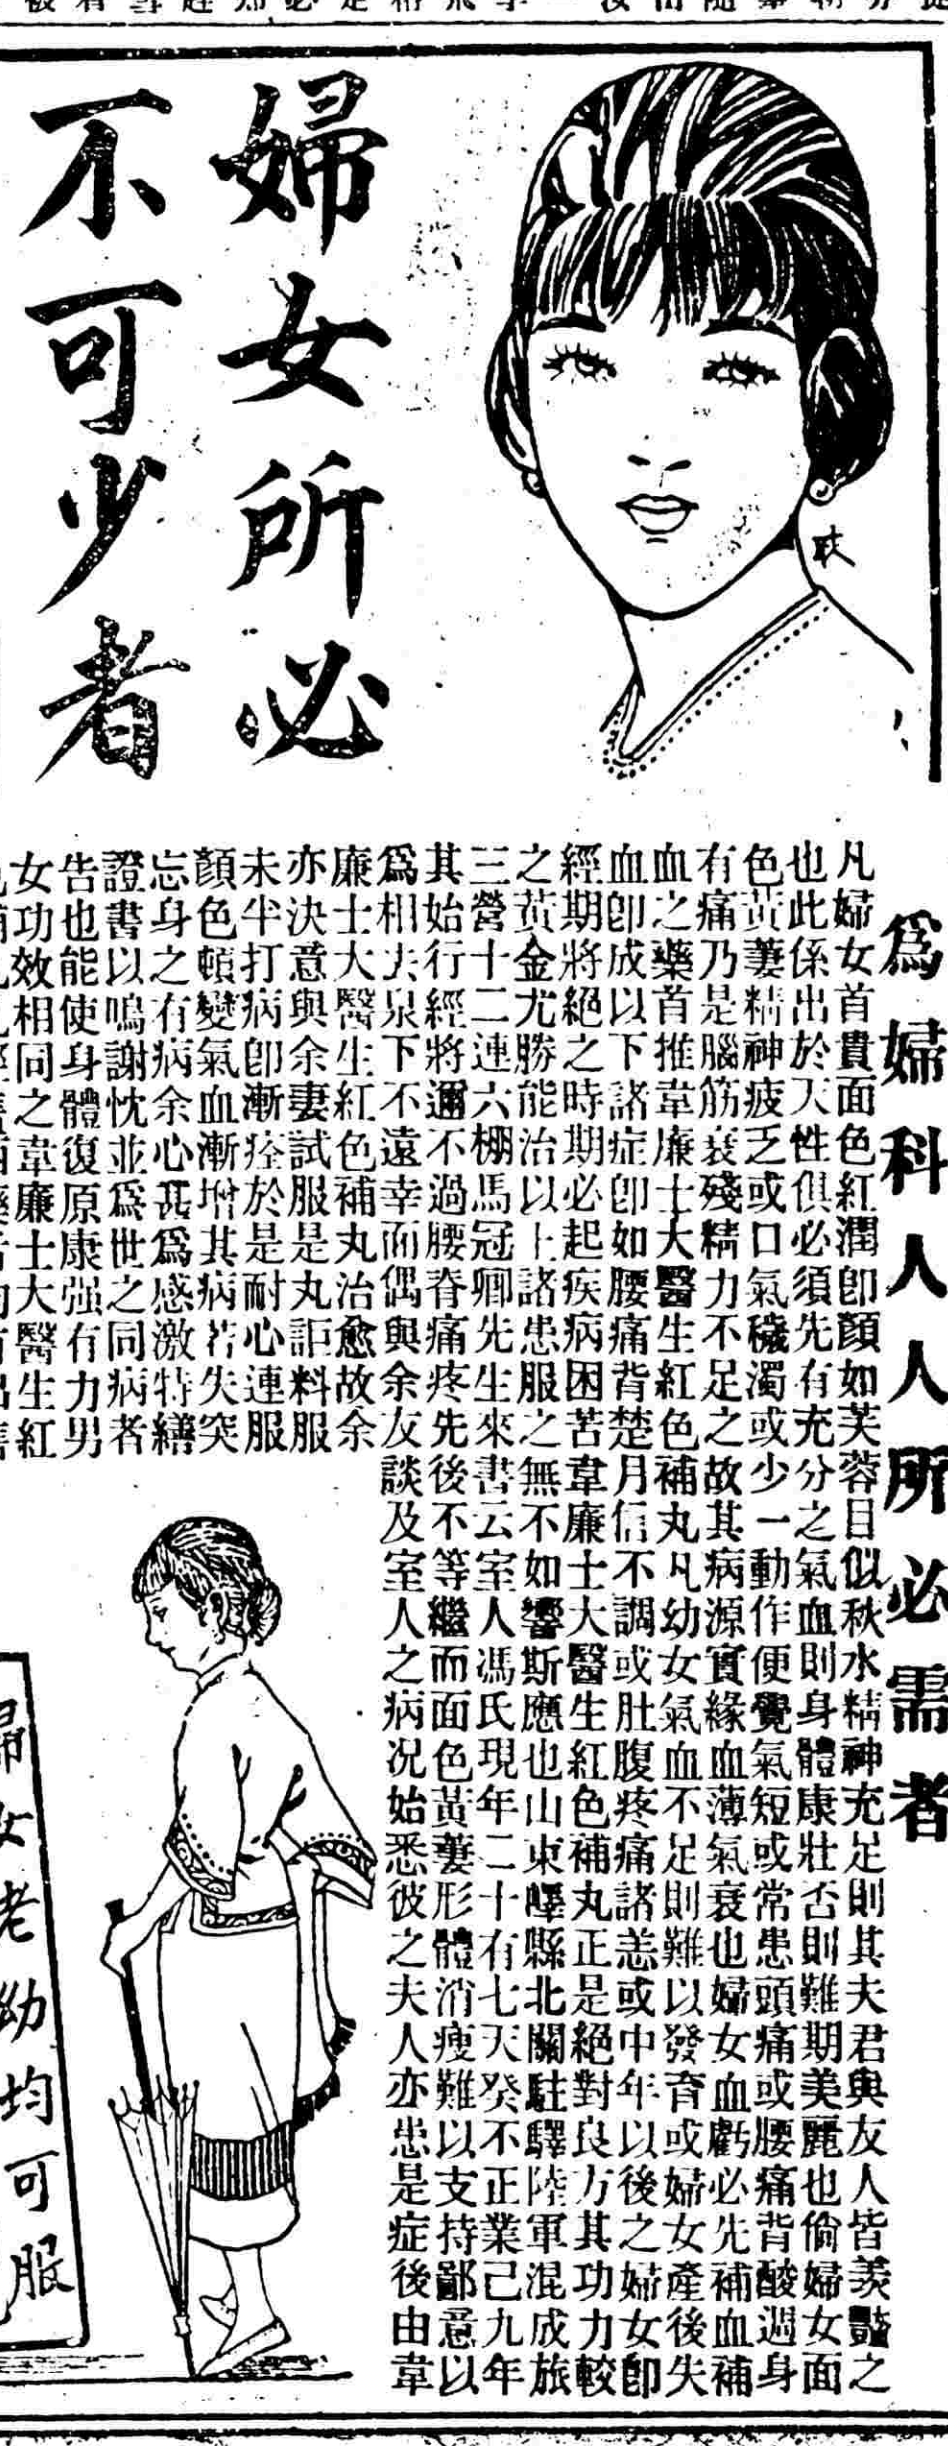 婦女所必
不可少者
爲婦科人人所必需者
凡婦女首貴面色紅潤卽顏如芙蓉目似秋水精神充足則其夫君與友人皆羨豔之
也此係出於天性俱必須先有充分之氣血則身體康壯否則難期美麗也倘婦女面
色黃萎精神疲乏或口氣穢濁或少一動作便覺氣短或常患頭痛或腰痛背酸週身
有痛乃是腦筋衰殘精力不足之故其病源實緣血薄氣衰也婦女血虧必先補血補
血之藥首推韋廉士大醫生紅色補丸凡幼女氣血不足則難以發育或婦女產後失
血卽成以下諸症卽如腰痛背楚月信不調或肚腹疼痛諸恙或中年以後之婦女卽
經期將絕之時期必起疾病困苦韋廉士大醫生紅色補丸正是絕對良方其功力較
之黃金尤勝能治以上諸患服之無不如響斯應也山東嶧縣北關駐驛陸軍混成旅
三營十二連六棚馬冠卿先生來書云室人馮氏現年二十有七天癸不正業已九年
其始行經將邇不過腰脊痛疼先後不等繼而面色黃萎形體消瘦難以支持鄙意以
爲相夫泉下不遠幸面偶與余友談及室人之病況始悉彼之夫人亦患是症後由韋
廉士大醫生紅色補丸治愈故余
亦決意與余妻試服是丸詎料服
未半打病卽漸痊於是耐心連服
顏色頓變氣血漸增其病若失突
忘身之有病余心甚爲感激特繕
證書以鳴謝忱並爲世之同病者
告也能使身體復原康强有力男
女功效相同之韋廉士大醫生紅
婦女老幼均可服